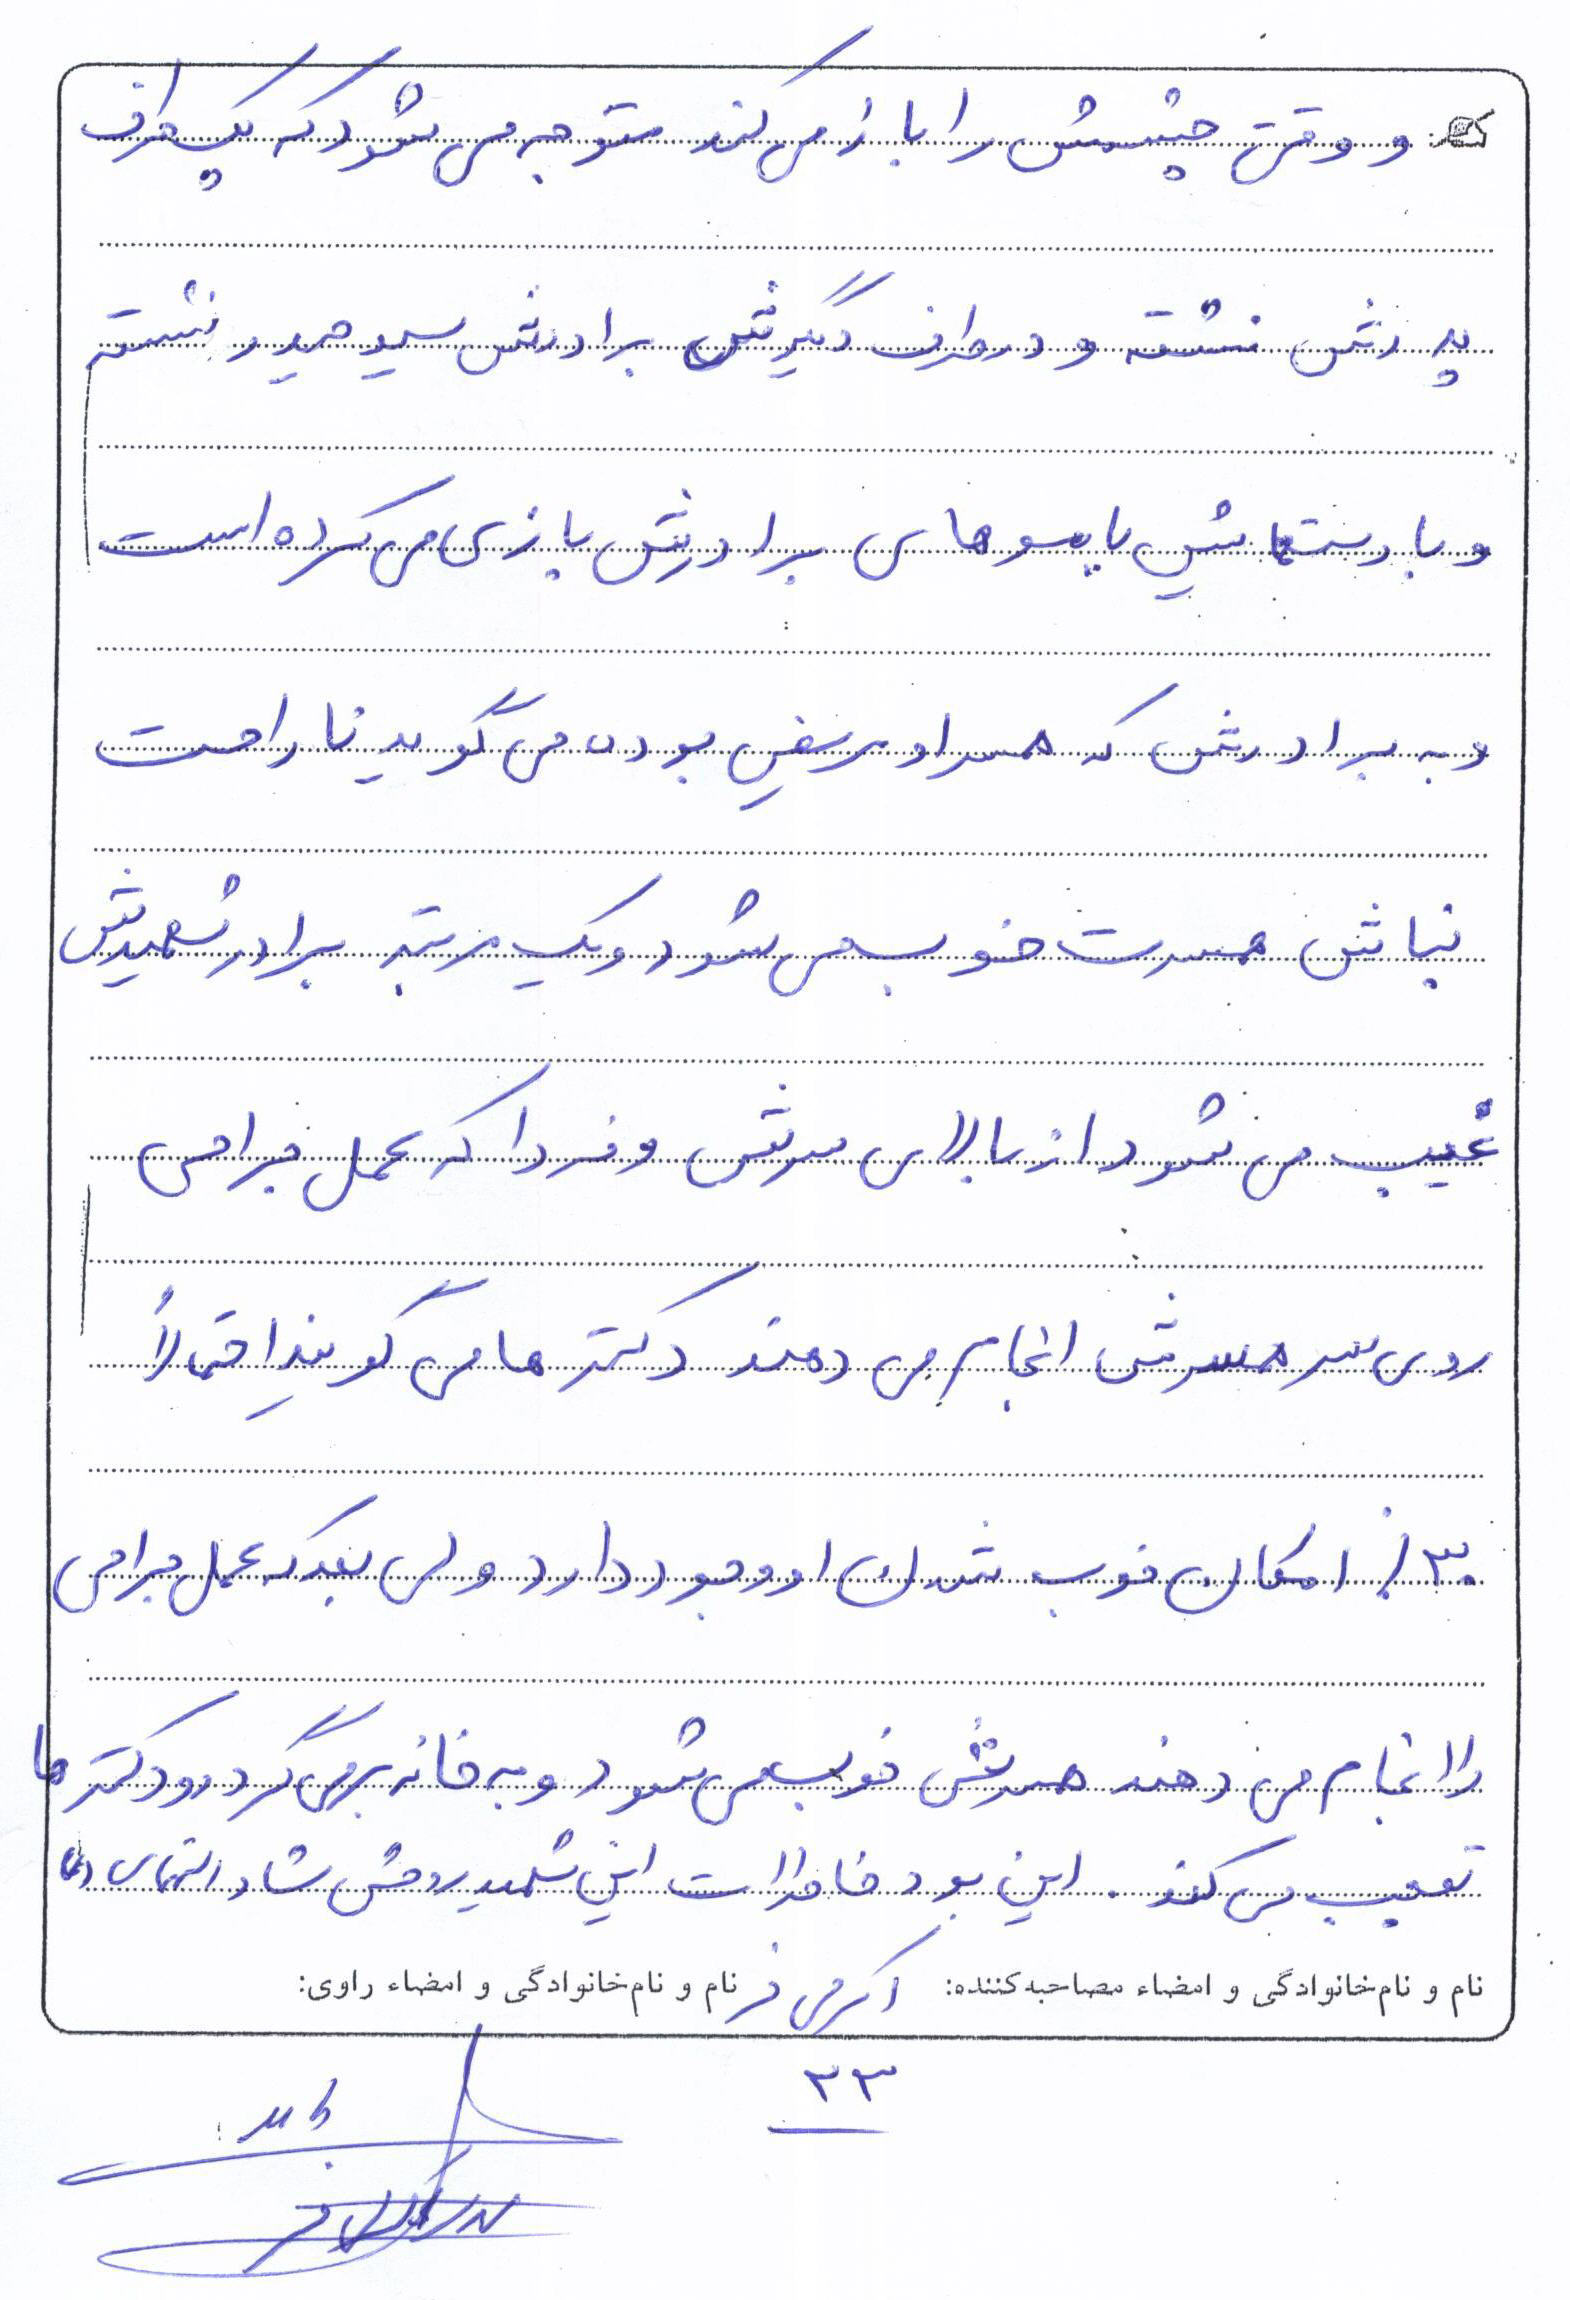 و وقتی چشمش را باز می کند متوجه می شود که یک طرف
پدرش نشسته و در طرف دگیرش برادرش سید حیدر نشسته
و با دستهایش با موهای برادرش بازی می کرده است
و به برادرش که همسر او مریض بوده می گوید ناراحت
نباش همسرت خوب می شود و یک مرتبه برادر شهیدش
غیب می شود از بالای سرش و فردا که عمل جراحی
روی سر همسرش انجام می دهند دکترها می گویند احتمالاً
۳۰٪ امکان خوب شدن او وجود دارد ولی بعد که عمل جراحی
را انجام می دهند همسرش خوب می شود و به خانه برمی گردد و دکترها
تعجب می کنند. این بود خاطرات این شهید روحش شاد التماس دعا
نام و نام‌خانوادگی و امضاء مصاحبه‌کننده: اکرمی فر نام و نام‌خانوادگی و امضاء راوی:
۲۳